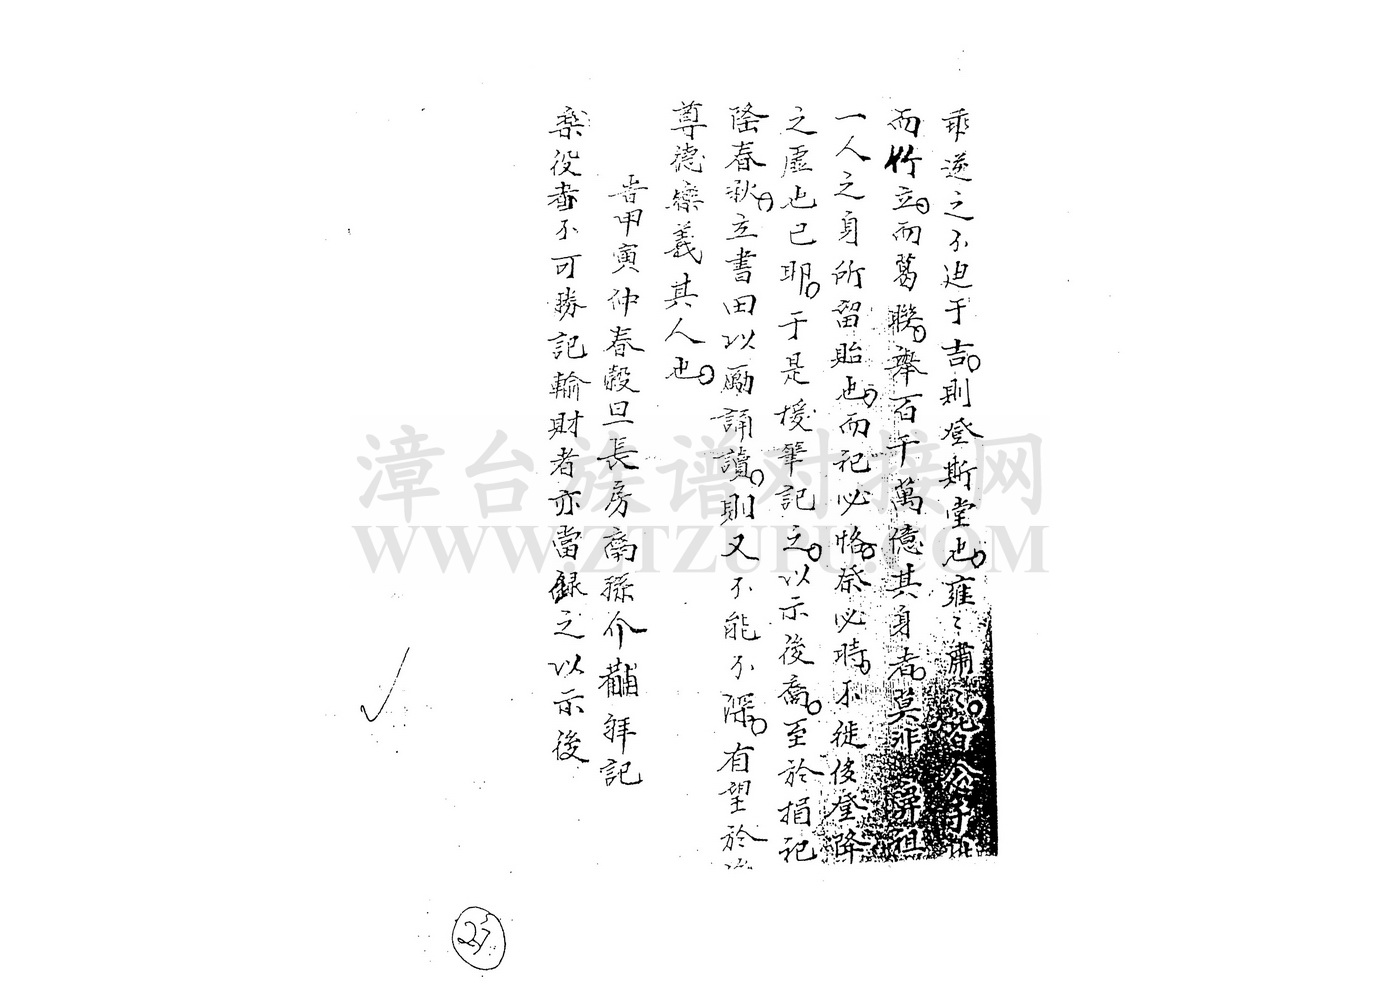 乖逆之不迫于吉則登斯堂也雍〻肅〻皆念
而竹立而葛聯舉百千萬億其身者莫非 屏祖
一人之身所留貽也而祀必恪祭必時不徙侈登降
之虛也已耶于是援筆記之以示後裔至於捐祀
隆春秋立書田以勵誦讀則又不能不深有望於
尊德樂義其人也
旹甲寅仲春穀旦長房裔孫介黼拜記
樂役者不可勝記輸財者亦當録之以示後
漳台族谱对接网
WWW.ZTZUPU.COM
25